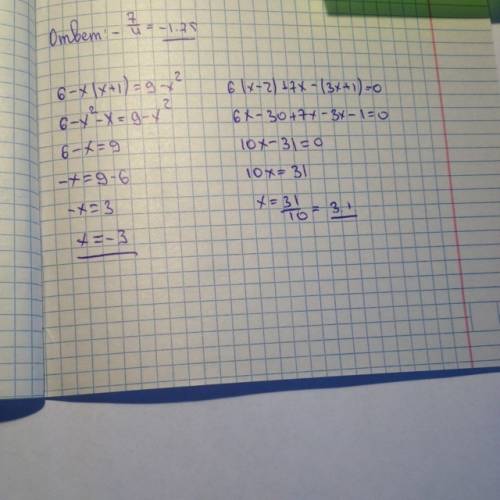 Ответ: -7/4 = -1.75
6-x(x+1)=9-x²
6-x²-x=9-x²
6-x=9
-x=9-6
-x=3
x=-3
6(x-2)+7x-(3x+1)=0
6x-30+7x-3x-1=0
10x-31=0
10x=31
x=31/10=3.1